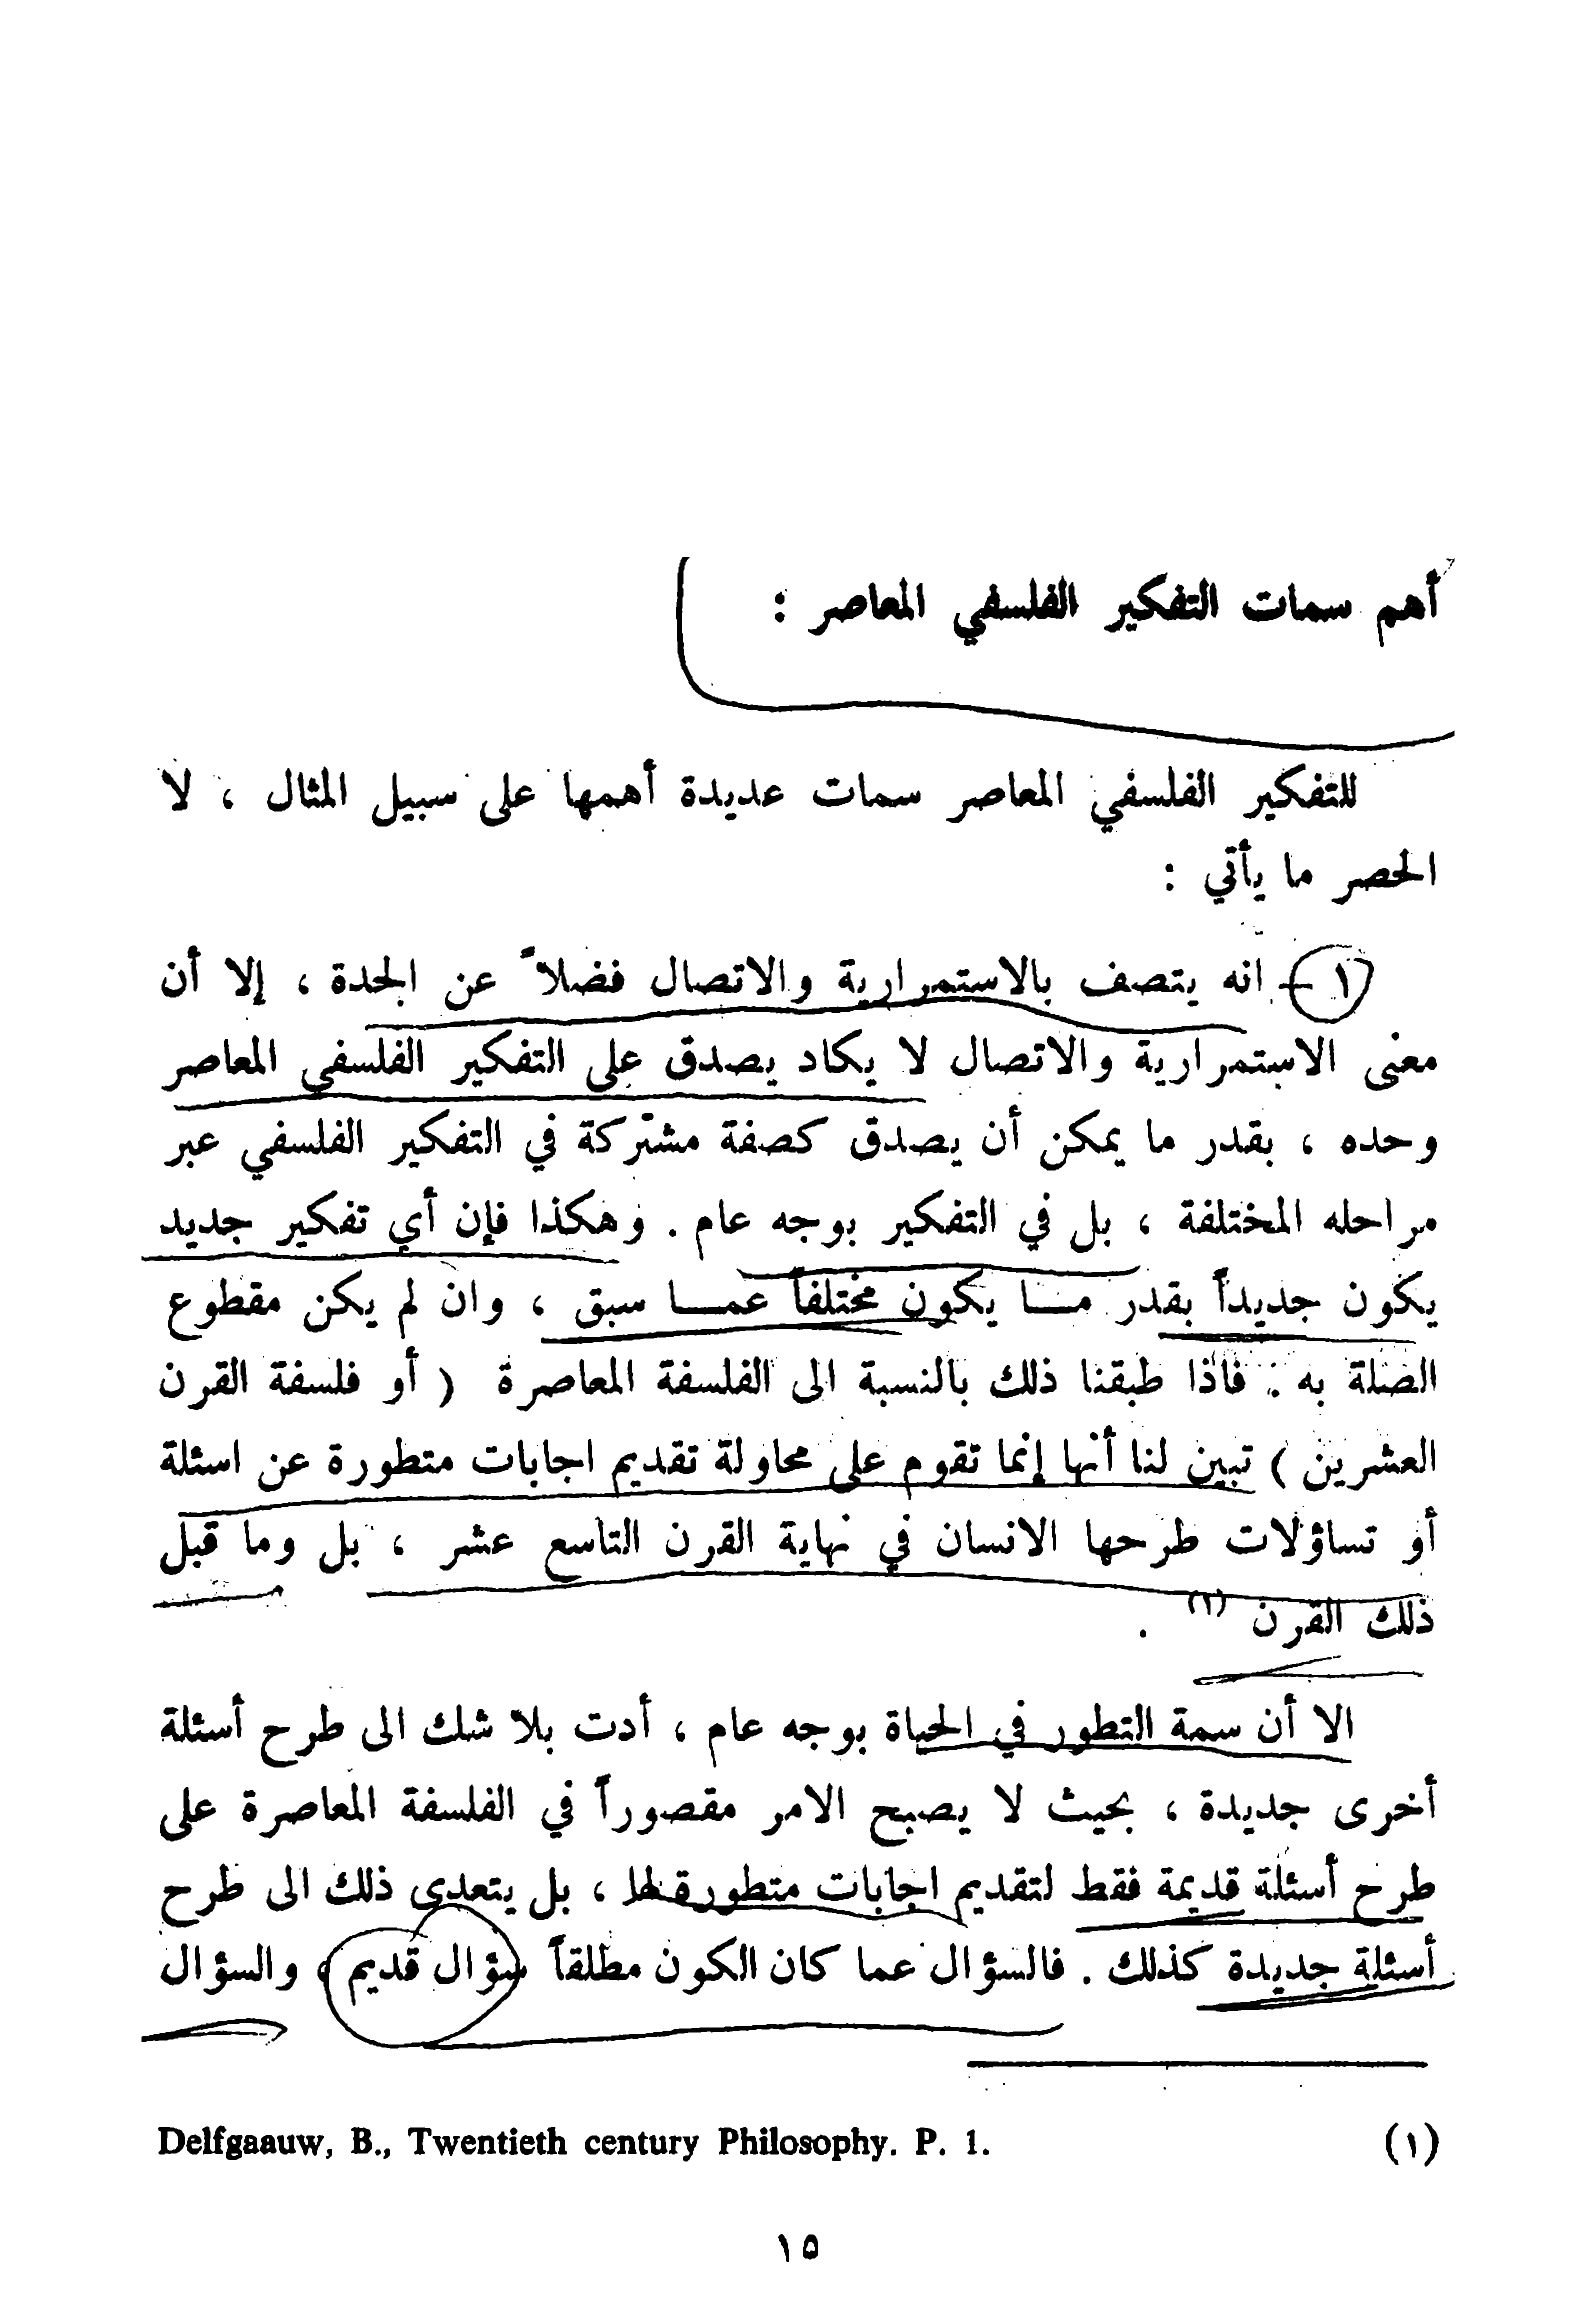 أهم سمات التفكير الفلسفي المعاصر :
للتفكير الفلسفي المعاصر سمات عديدة أهمها على سبيل المثال ، لا
الحصر ما يأتي :
١ - انه يتصف بالاستمرارية والاتصال فضلاً عن الجدة ، إلا أن
معنى الاستمرارية والاتصال لا يكاد يصدق على التفكير الفلسفي المعاصر
وحده ، بقدر ما يمكن أن يصدق كصفة مشتركة في التفكير الفلسفي عبر
مراحله المختلفة ، بل في التفكير بوجه عام . وهكذا فإن أي تفكير جديد
يكون جديداً بقدر مـــا يكون مختلفاً عمـــا سبق ، وان لم يكن مقطوع
الصلة به . فاذا طبقنا ذلك بالنسبة الى الفلسفة المعاصرة ( أو فلسفة القرن
العشرين ) تبين لنا أنها إنما تقوم على محاولة تقديم اجابات متطورة عن اسئلة
أو تساؤلات طرحها الانسان في نهاية القرن التاسع عشر ، بل وما قبل
ذلك القرن (١) .
الا أن سمة التطور في الحياة بوجه عام ، أدت بلا شك الى طرح أسئلة
أخرى جديدة ، بحيث لا يصبح الامر مقصوراً في الفلسفة المعاصرة على
طرح أسئلة قديمة فقط لتقديم اجابات متطورة لها ، بل يتعدى ذلك الى طرح
أسئلة جديدة كذلك . فالسؤال عما كان الكون مطلقاً سؤال قديم ، والسؤال
(١) Delfgaauw, B., Twentieth century Philosophy. P. 1.
١٥